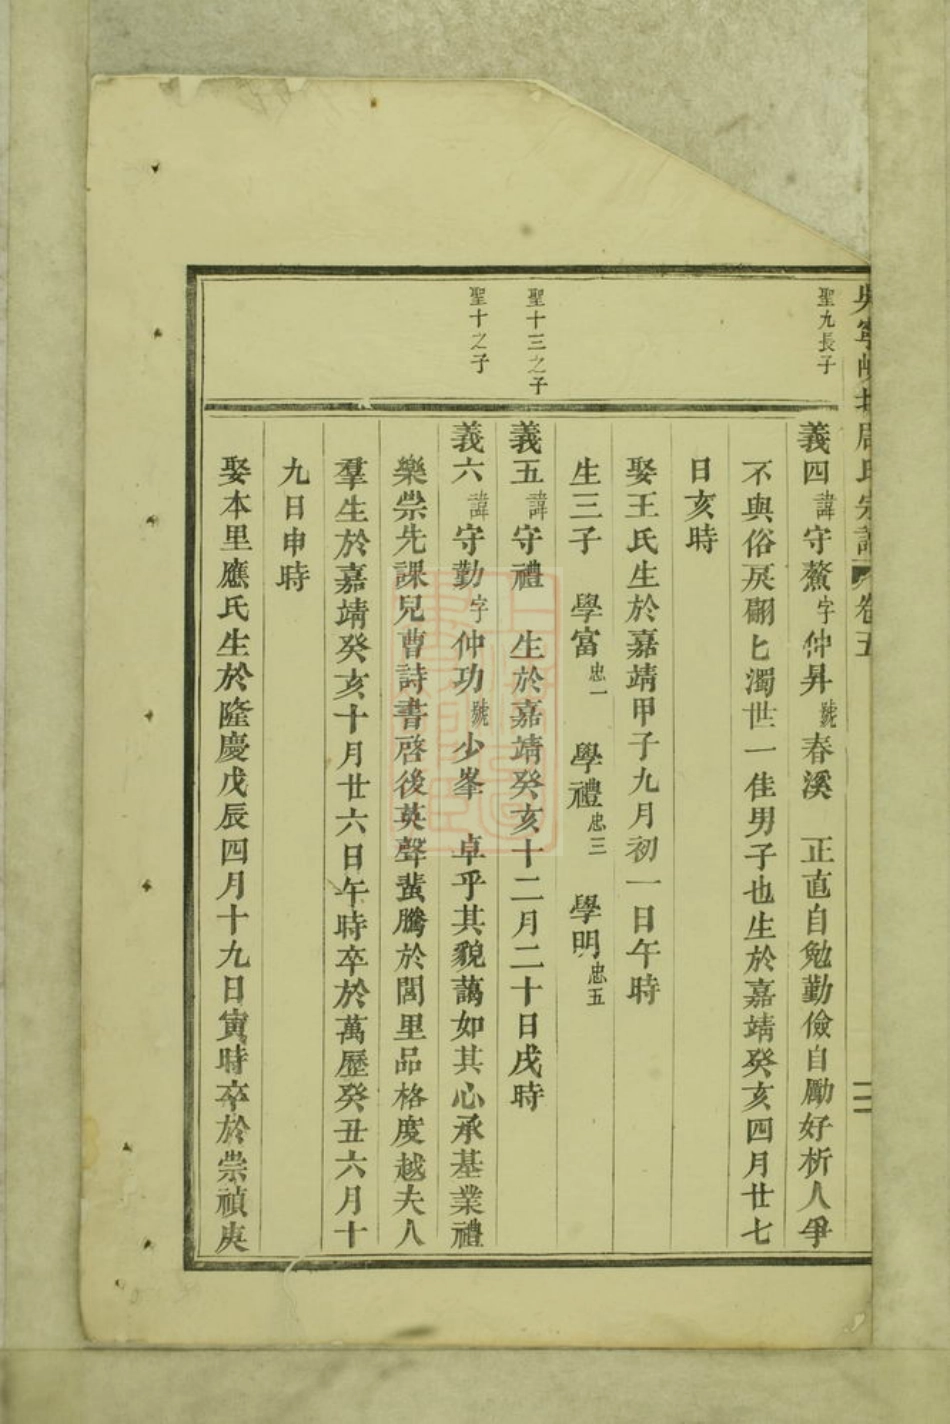 周氏宗譜 卷五 二
聖九長子
義四 諱守鰲 字仲昇 號春溪 正直自勉勤儉自勵好析人爭
不與俗戾翩匕濁世一佳男子也生於嘉靖癸亥四月廿七
日亥時
娶王氏生於嘉靖甲子九月初一日午時
生三子 學富忠一 學禮忠三 學明忠五
聖十三之子
義五 諱守禮 生於嘉靖癸亥十二月二十日戌時
聖十之子
義六 諱守勤 字仲功 號少峯 卓乎其貌藹如其心承基業禮
樂崇先課兒曹詩書啓後英聲蜚騰於閭里品格度越夫人
羣生於嘉靖癸亥十月廿六日午時卒於萬歷癸丑六月十
九日申時
娶本里應氏生於隆慶戊辰四月十九日寅時卒於崇禎庚